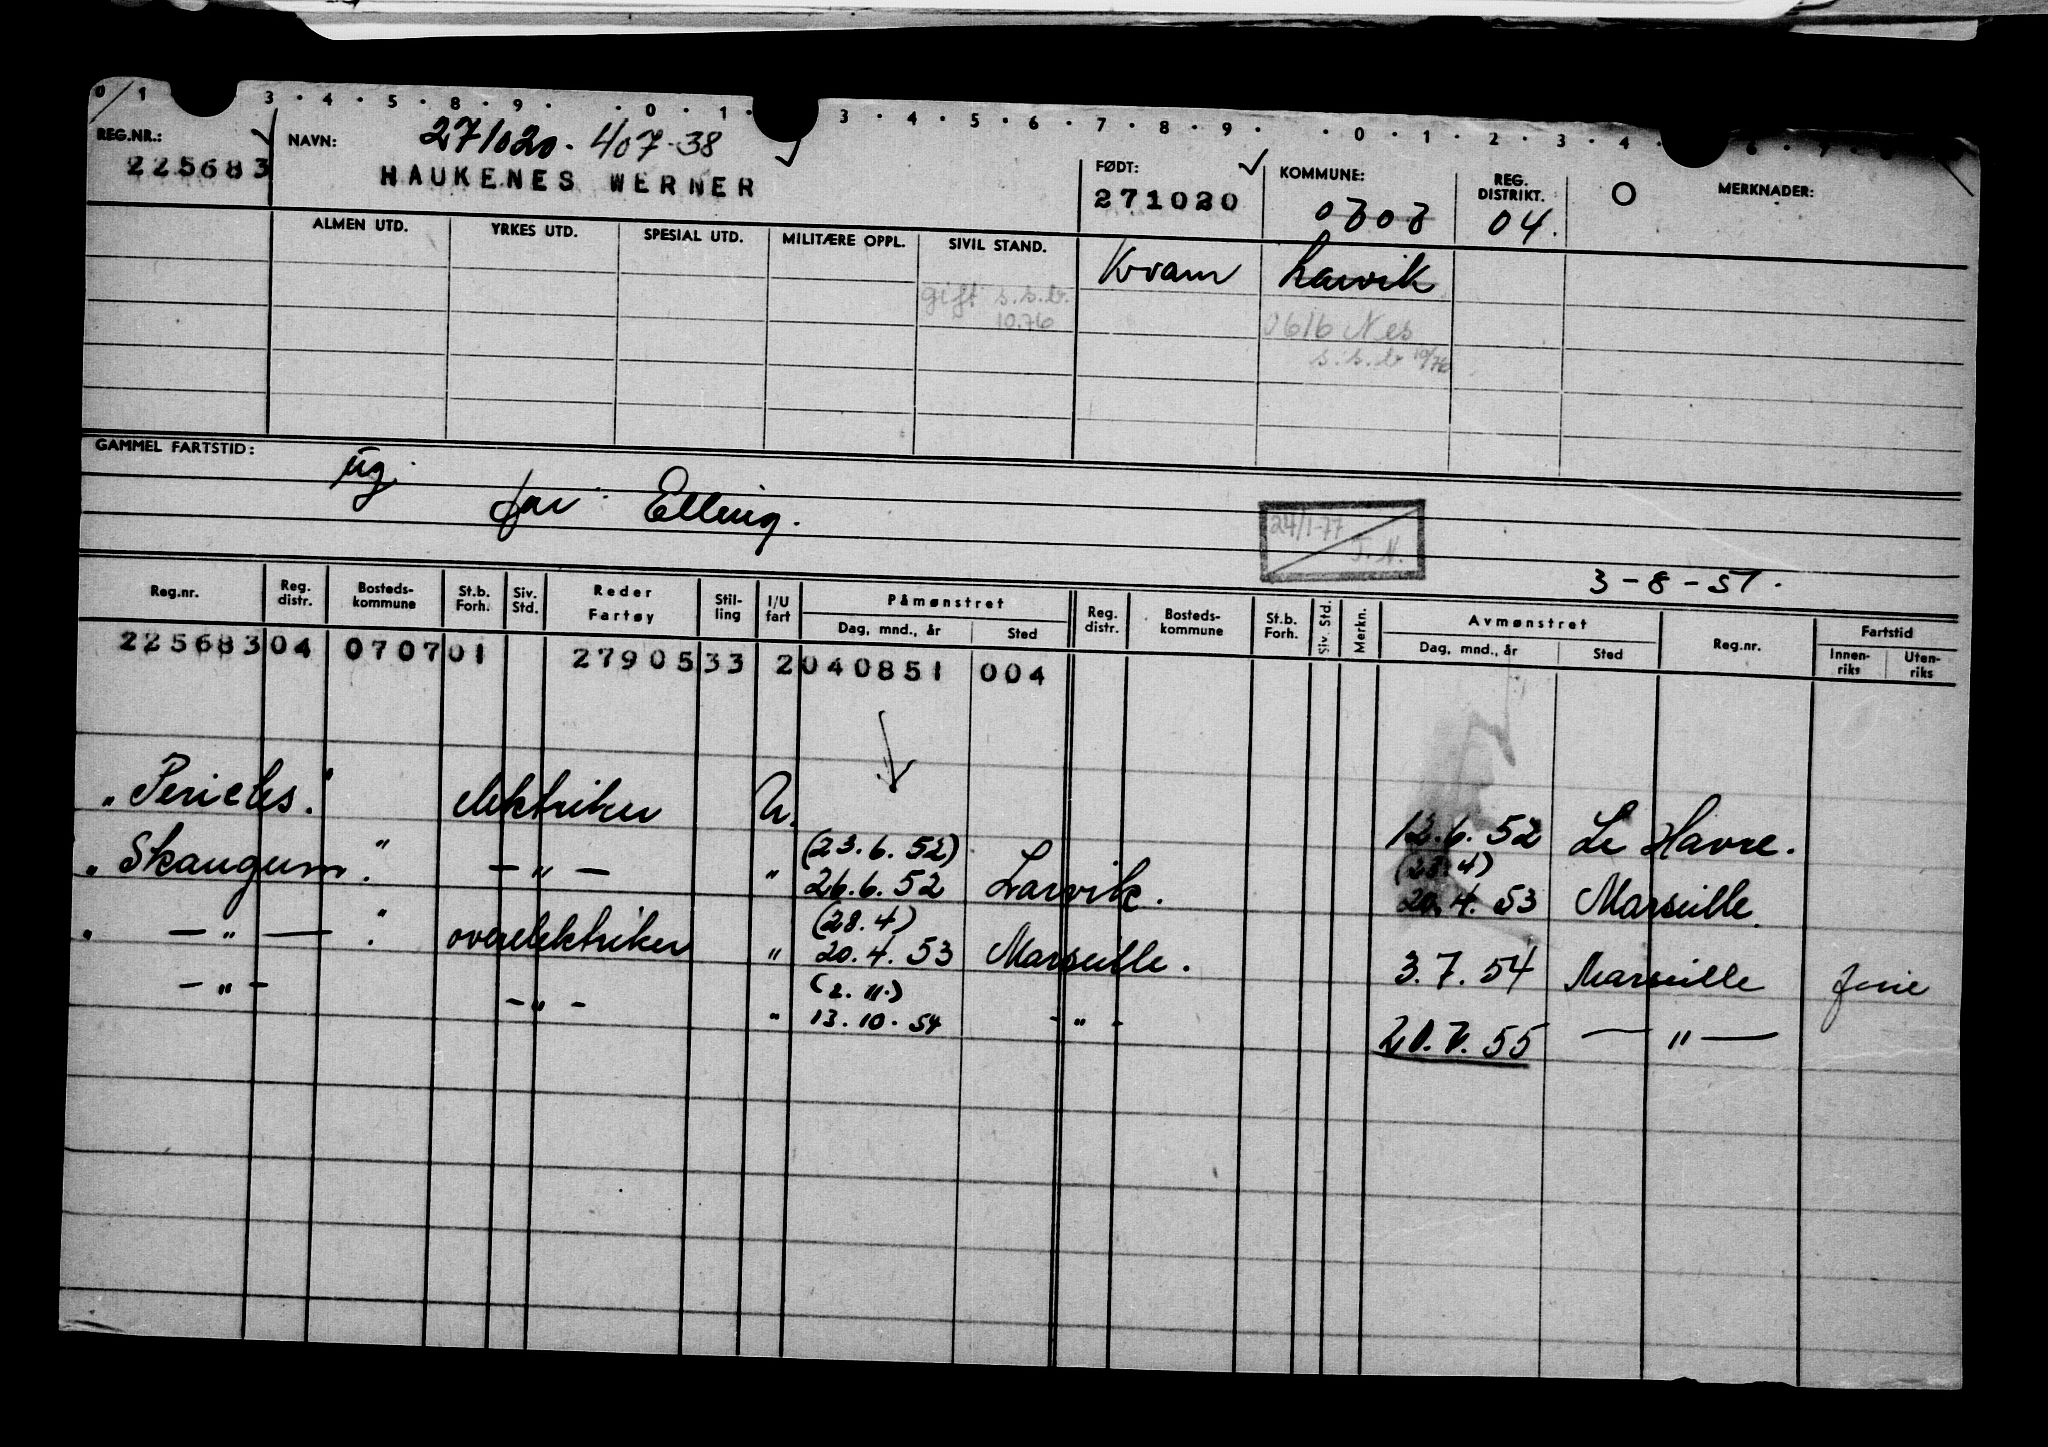 0 1 3 · 4 · 5 · 8 · 9 · · 0 · 1 · 3 · 4 · 5 · 6 · 7 · 8 · 9 · · 0 · 1 · 2 · 3 · 4 ·
REG.NR.: NAVN: 271020. 407-38
225683 HAUKENES WERNER FØDT: 271020 KOMMUNE: 0707 REG. DISTRIKT. 04. MERKNADER:
ALMEN UTD. YRKES UTD. SPESIAL UTD. MILITÆRE OPPL. SIVIL STAND. Kvam Larvik
gift s.s.b. 0616 Nes
10.76 s.s.b 10/76
GAMMEL FARTSTID:
ug.
far: Elling.
24/1-77
T.N.
3-8-51.
Reg.nr. Reg. distr. Bosteds-kommune St.b. Forh. Siv. Std. Reder Fartøy Stil-ling I/U fart Påmønstret Dag, mnd., år Sted Reg. distr. Bosteds-kommune St.b. Forh. Siv. Std. Merkn. Avmønstret Dag, mnd., år Sted Reg.nr. Fartstid Innen-riks Uten-riks
225683 04 0707 01 27905 33 2 040851 004
"Pericles." elektriker U. 12.6.52 Le Havre.
(23.6.52) (28.4)
"Skaugum." — " — " 26.6.52 Larvik. 20.4.53 Marseille.
(28.4)
" — " — ." overelektriker " 20.4.53 Marseille. 3.7.54 Marseille
(2.11.)
— " — — " — " 13.10.54 — " — 20.7.55 — " —